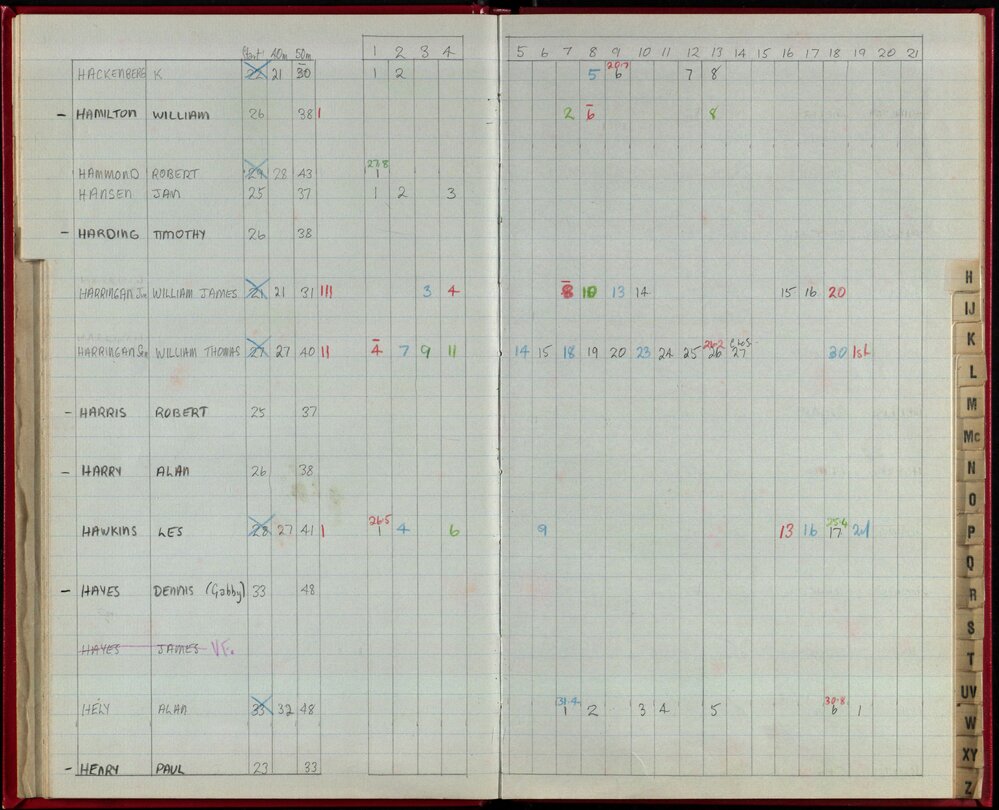 Start 40m 50m 1 2 3 4 5 6 7 8 9 10 11 12 13 14 15 16 17 18 19 20 21
20.7
HACKENBERG K 22 21 30 1 2 5 6 7 8
- HAMILTON WILLIAM 26 38 1 2 6 8
27.8
HAMMOND ROBERT 29 28 43 1
HANSEN JAN 25 37 1 2 3
- HARDING TIMOTHY 26 38
HARRINGAN Jnr WILLIAM JAMES 21 21 31 111 3 4 8 10 13 14 15 16 20
26.2
HARRINGAN Sen WILLIAM THOMAS 27 27 40 11 4 7 9 11 14 15 18 19 20 23 24 25 26 27 30 1st
- HARRIS ROBERT 25 37
- HARRY ALAN 26 38
26.5 25.4
HAWKINS LES 28 27 41 1 1 4 6 9 13 16 17 21
- HAYES DENNIS (Gabby) 33 48
HAYES JAMES V.F.
31.4 30.8
HÉLY ALAN 33 32 48 1 2 3 4 5 6 1
- HENRY PAUL 23 33
H
IJ
K
L
M
Mc
N
O
P
Q
R
S
T
UV
W
XY
Z